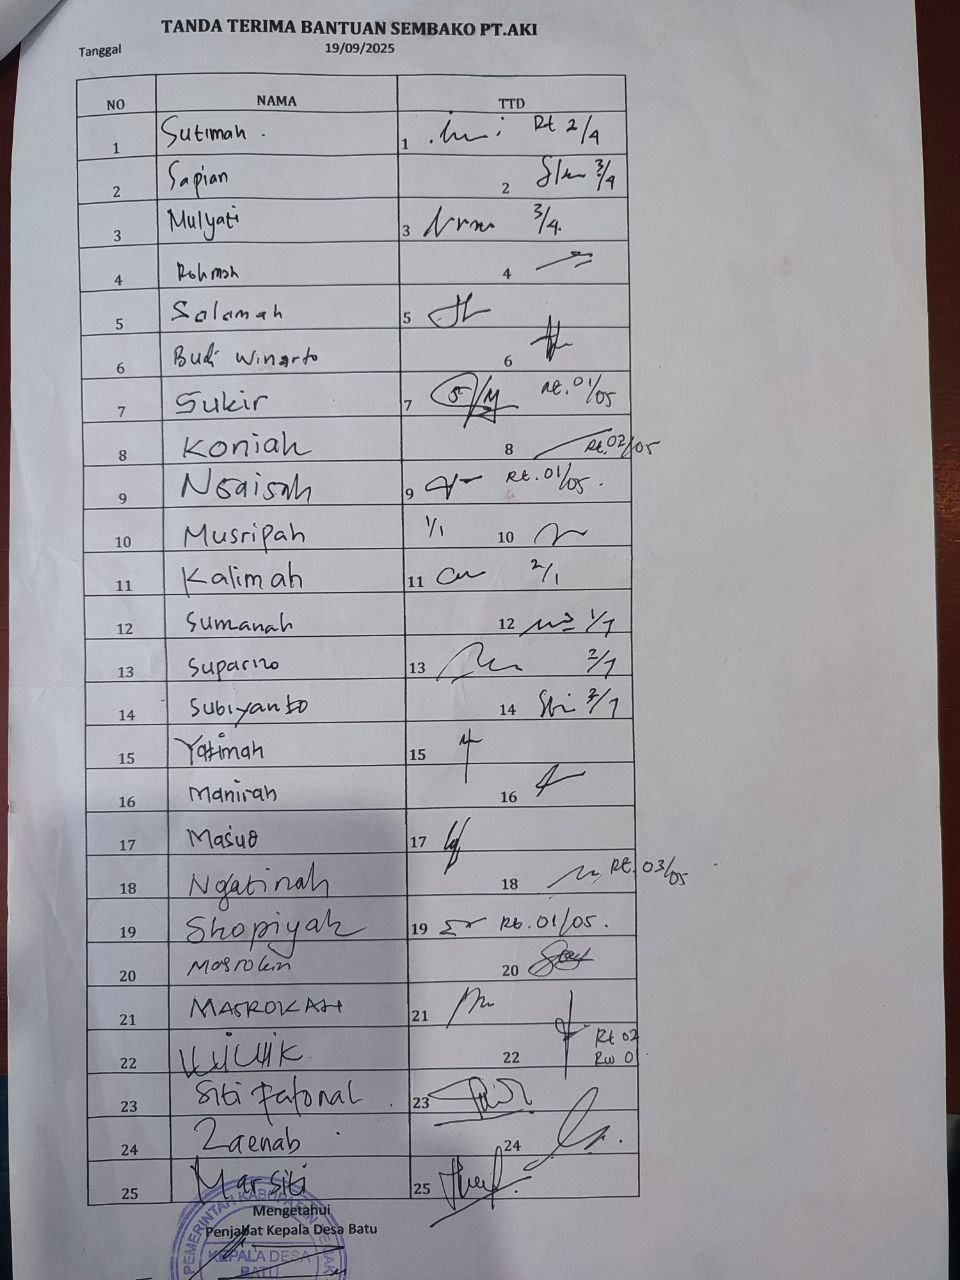 TANDA TERIMA BANTUAN SEMBAKO PT.AKI
Tanggal 19/09/2025
NO NAMA TTD
1 Sutimah . 1 Rt 2/4
2 Sapian 2 3/4
3 Mulyati 3 3/4.
4 Rohmah 4
5 Salamah 5
6 Budi Winarto 6
7 Sukir 7 Rt. 01/05
8 Koniah 8 Rt.02/05
9 Ngaisah 9 Rt. 01/05.
10 Musripah 1/1 10
11 Kalimah 11 2/1
12 Sumanah 12 1/7
13 Suparno 13 2/7
14 Subiyanto 14 3/7
15 Yatimah 15
16 Manirah 16
17 Masud 17
18 Ngatinah 18 Rt. 03/05
19 Shopiyah 19 Rt. 01/05.
20 Masrokin 20
21 MASROKAH 21
22 22 Rt 02
Rw 0
23 Siti Fatonah 23
24 Zaenab 24
25 Marsiti 25
Mengetahui
Penjabat Kepala Desa Batu
PEMERINTAH KABUPATEN DEMAK
KEPALA DESA
BATU